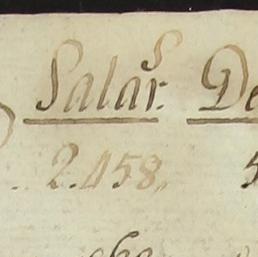 Salar.s De
2.458,, 5